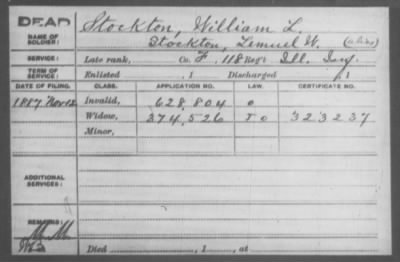 DEAD
NAME OF SOLDIER:
Stockton, William L.
Stockton, Lemuel W. (alias)
SERVICE:
Late rank, Co. F, 118 Reg't Ill. Inf.
TERM OF SERVICE:
Enlisted , 1 Discharged , 1
DATE OF FILING. CLASS. APPLICATION NO. LAW. CERTIFICATE NO.
1887 Nov 12 Invalid, 628,804 o
Widow, 374,526 323237
Minor,
ADDITIONAL SERVICES:
REMARKS:
Died , 1 , at